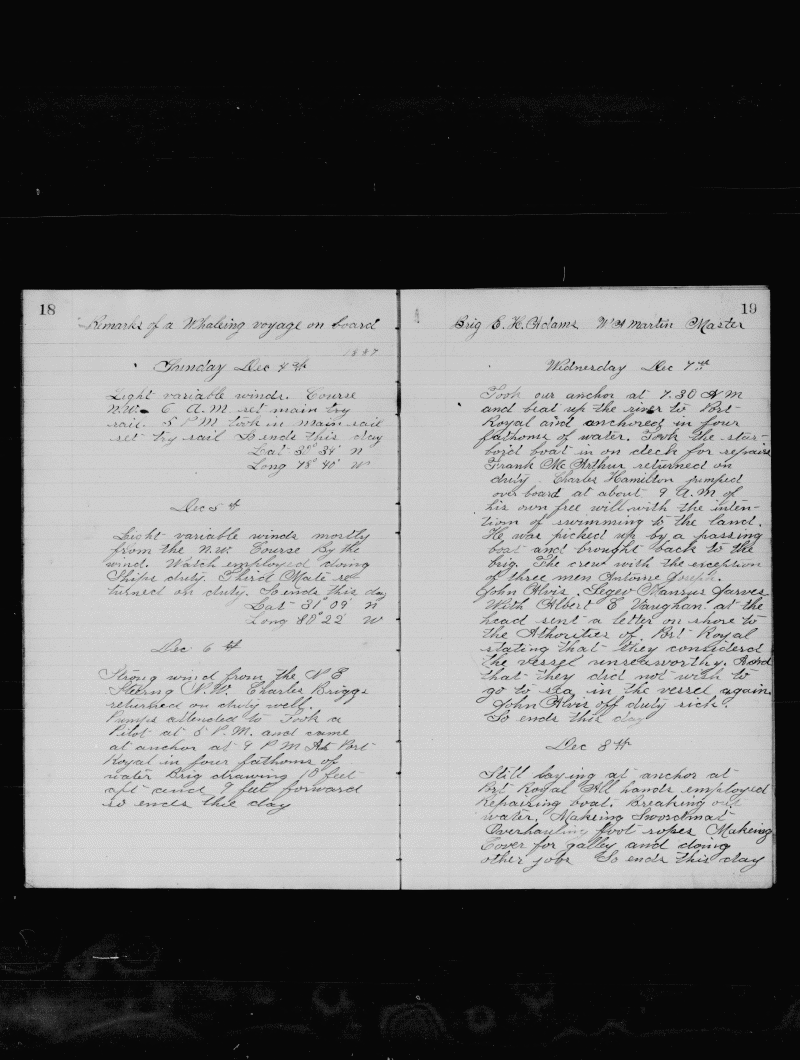 18
Remarks of a Whaleing voyage on board
1887
Sunday Dec 4th
Light variable winds. Course
N.W. 6 A.M set main try
sail. 5 P M took in main sail
set try sail So ends this day
Lat 30° 34' N
Long 78° 40' W
Dec 5th
Light variable winds mostly
from the N.W. Course By the
wind. Watch employed doing
Ships duty. Third Mate re-
turned on duty. So ends this day
Lat 31° 09' N
Long 80° 22' W
Dec 6th
Strong wind from the N E
Steering N.W. Charles Briggs
returned on duty well.
Pumps attended to Took a
Pilot at 5 P.M. and came
at anchor at 9 P M At Port
Royal in four fathoms of
water Brig drawing 10 feet
aft and 9 feet forward
so ends this day
19
Brig E. H. Adams W H Martin Master
Wednesday Dec 7th
Took our anchor at 7.30 A M
and beat up the river to Port
Royal and anchored in four
fathoms of water. Took the star-
bord boat in on deck for repairs
Frank Mc Arthur returned on
duty. Charles Hamilton jumped
over board at about 9 A.M of
his own free will with the inten-
tion of swimming to the land.
He was picked up by a passing
boat and brought back to the
brig. The crew with the exception
of three men Antoine Joseph.
John Alvis. Segev Mansus Jarves
With Albert E Vaughan. at the
head sent a letter on shore to
the Athorities of Port Royal
stating that they considered
the vessel unseaworthy. And
that they did not wish to
go to sea in the vessel again.
John Alvis off duty sick.
So ends this day
Dec 8th
Still laying at anchor at
Port Royal All hands employed
Repairing boat. Breaking out
water, Makeing Swordmat
Overhauling foot ropes Makeing
Cover for galley and doing
other jobs So ends this day